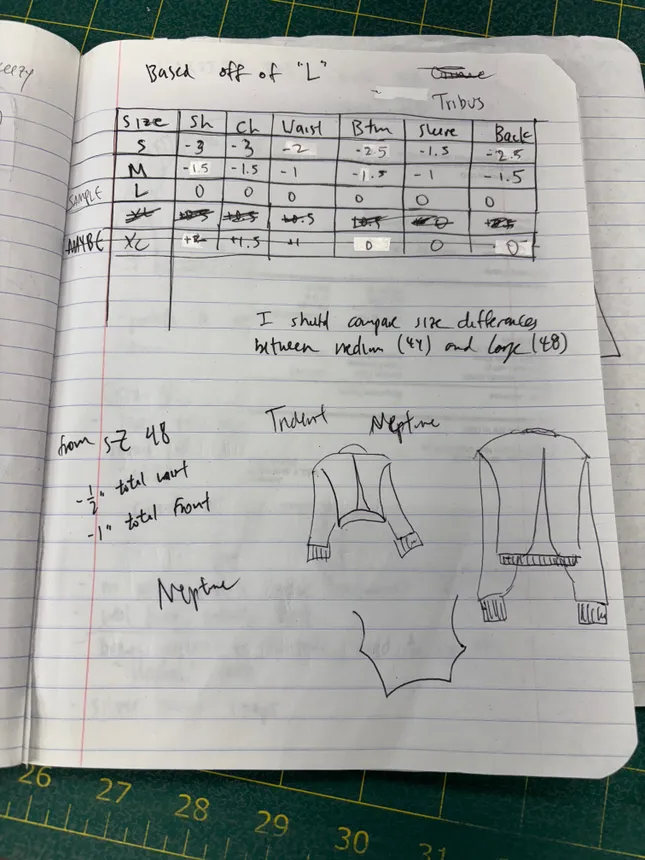 eezy
Based off of "L"
Tribus
Size Sh Ch Waist Btm Sleeve Back
S -3 -3 -2 -2.5 -1.5 -2.5
M -1.5 -1.5 -1 -1.5 -1 -1.5
SAMPLE L 0 0 0 0 0 0
XL +0.5 +0.5 +0.5 +0.5 0
MAYBE XL +2 +1.5 +1 0 0 0
I should compare size differences
between medium (44) and large (48)
Trident Neptune
from sz 48
-1/2" total waist
-1" total front
Neptune
26 27 28 29 30 31